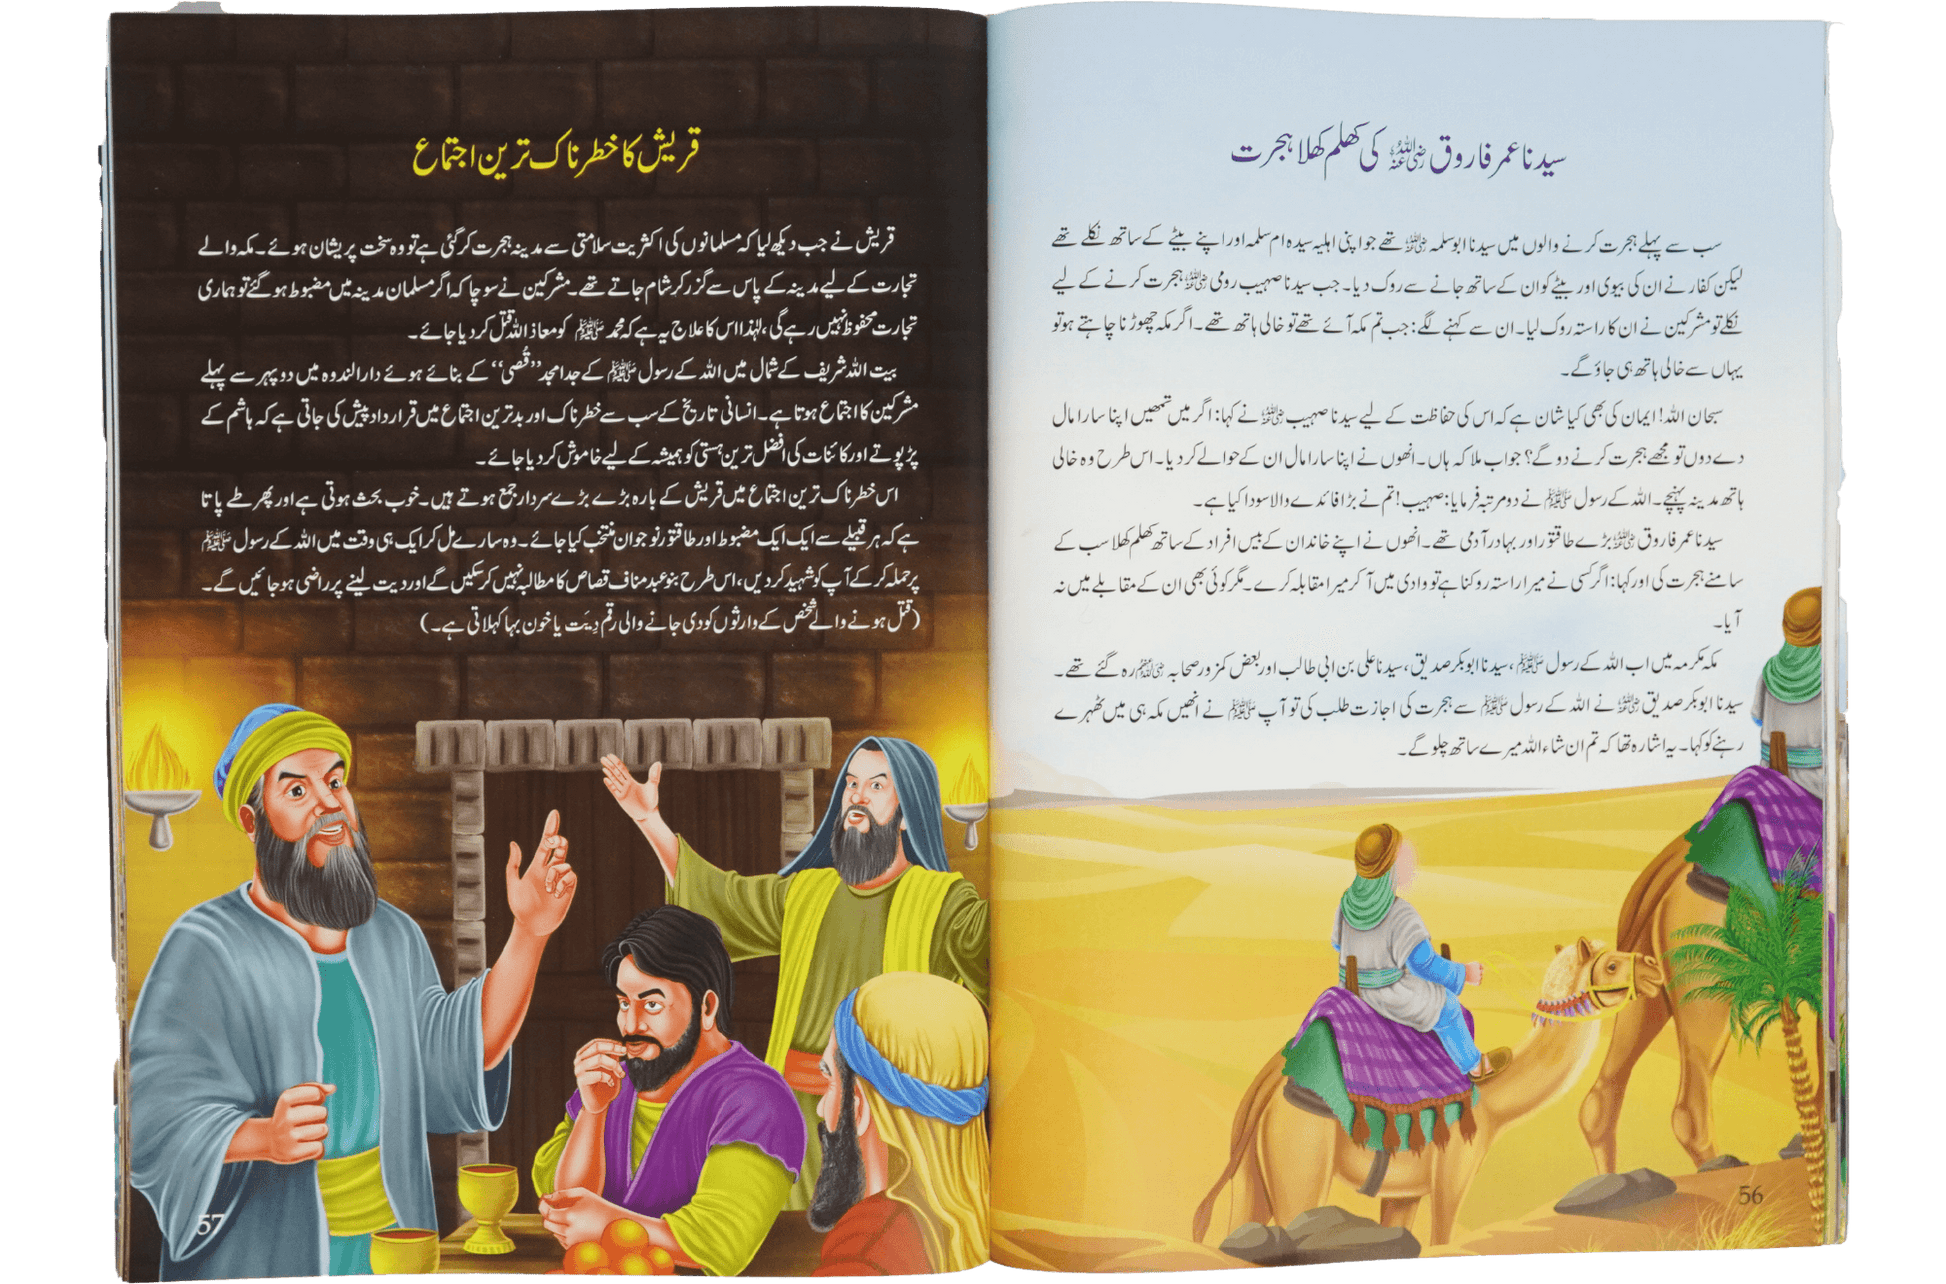 سیدنا عمر فاروق رضی اللہ عنہ کی کھلم کھلا ہجرت
سب سے پہلے ہجرت کرنے والوں میں سیدنا ابو سلمہ رضی اللہ عنہ تھے جو اپنی اہلیہ سیدہ ام سلمہ اور اپنے بیٹے کے ساتھ نکلے تھے
لیکن کفار نے ان کی بیوی اور بیٹے کو ان کے ساتھ جانے سے روک دیا۔ جب سیدنا صہیب رومی رضی اللہ عنہ ہجرت کرنے کے لیے
نکلے تو مشرکین نے ان کا راستہ روک لیا۔ ان سے کہنے لگے: جب تم مکہ آئے تھے تو خالی ہاتھ تھے۔ اگر مکہ چھوڑنا چاہتے ہو تو
یہاں سے خالی ہاتھ ہی جاؤ گے۔
سبحان اللہ! ایمان کی بھی کیا شان ہے کہ اس کی حفاظت کے لیے سیدنا صہیب رضی اللہ عنہ نے کہا: اگر میں تمھیں اپنا سارا مال
دے دوں تو مجھے ہجرت کرنے دو گے؟ جواب ملا کہ ہاں۔ انھوں نے اپنا سارا مال ان کے حوالے کر دیا۔ اس طرح وہ خالی
ہاتھ مدینہ پہنچے۔ اللہ کے رسول ﷺ نے دو مرتبہ فرمایا: صہیب! تم نے بڑا فائدے والا سودا کیا ہے۔
سیدنا عمر فاروق رضی اللہ عنہ بڑے طاقتور اور بہادر آدمی تھے۔ انھوں نے اپنے خاندان کے بیس افراد کے ساتھ کھلم کھلا سب کے
سامنے ہجرت کی اور کہا: اگر کسی نے میرا راستہ روکنا ہے تو وادی میں آ کر میرا مقابلہ کرے۔ مگر کوئی بھی ان کے مقابلے میں نہ
آیا۔
مکہ مکرمہ میں اب اللہ کے رسول ﷺ، سیدنا ابوبکر صدیق، سیدنا علی بن ابی طالب اور بعض کمزور صحابہ رضی اللہ عنہم رہ گئے تھے۔
سیدنا ابوبکر صدیق رضی اللہ عنہ نے اللہ کے رسول ﷺ سے ہجرت کی اجازت طلب کی تو آپ ﷺ نے انھیں مکہ ہی میں ٹھہرے
رہنے کو کہا۔ یہ اشارہ تھا کہ تم ان شاء اللہ میرے ساتھ چلو گے۔
56
قریش کا خطرناک ترین اجتماع
قریش نے جب دیکھ لیا کہ مسلمانوں کی اکثریت سلامتی سے مدینہ ہجرت کر گئی ہے تو وہ سخت پریشان ہوئے۔ مکہ والے
تجارت کے لیے مدینہ کے پاس سے گزر کر شام جاتے تھے۔ مشرکین نے سوچا کہ اگر مسلمان مدینہ میں مضبوط ہو گئے تو ہماری
تجارت محفوظ نہیں رہے گی، لہٰذا اس کا علاج یہ ہے کہ محمد ﷺ کو معاذ اللہ قتل کر دیا جائے۔
بیت اللہ شریف کے شمال میں اللہ کے رسول ﷺ کے جد امجد ’’قُصی‘‘ کے بنائے ہوئے دار الندوہ میں دوپہر سے پہلے
مشرکین کا اجتماع ہوتا ہے۔ انسانی تاریخ کے سب سے خطرناک اور بدترین اجتماع میں قرارداد پیش کی جاتی ہے کہ ہاشم کے
پڑپوتے اور کائنات کی افضل ترین ہستی کو ہمیشہ کے لیے خاموش کر دیا جائے۔
اس خطرناک ترین اجتماع میں قریش کے بارہ بڑے بڑے سردار جمع ہوتے ہیں۔ خوب بحث ہوتی ہے اور پھر طے پاتا
ہے کہ ہر قبیلے سے ایک ایک مضبوط اور طاقتور نوجوان منتخب کیا جائے۔ وہ سارے مل کر ایک ہی وقت میں اللہ کے رسول ﷺ
پر حملہ کر کے آپ کو شہید کر دیں، اس طرح بنو عبد مناف قصاص کا مطالبہ نہیں کر سکیں گے اور دیت لینے پر راضی ہو جائیں گے۔
(قتل ہونے والے شخص کے وارثوں کو دی جانے والی رقم دِیَت یا خون بہا کہلاتی ہے۔)
57